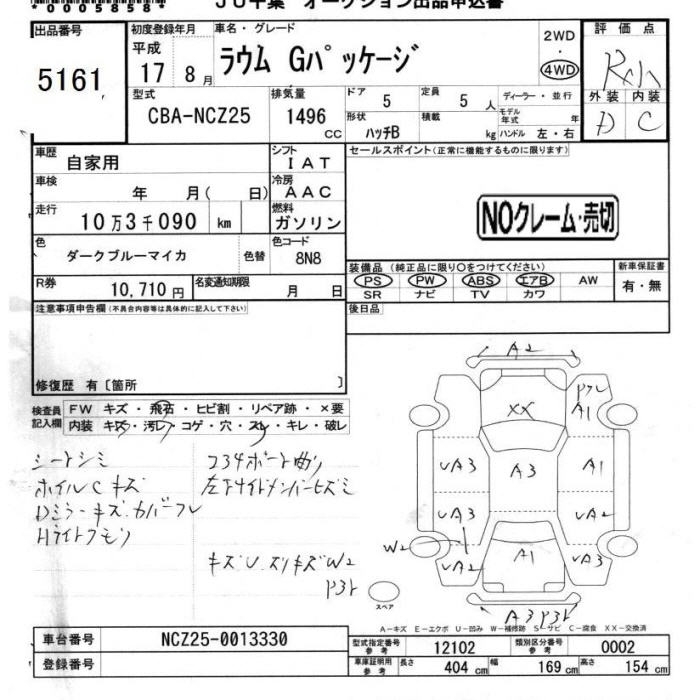 *0005858*
JU千葉 オークション出品申込書
出品番号
5161
初度登録年月
平成
17 8月
車名・グレード
ラウム Gパッケージ
2WD
・
4WD
評価点
外装 内装
D C
型式
CBA-NCZ25
排気量
1496
CC
ドア 5
定員 5人
ディーラー・並行
形状
ハッチB
積載
kg
モデル年式
ハンドル 左・右
車歴
自家用
シフト
IAT
車検
年 月( 日)
冷房
AAC
走行
10万3千090 km
燃料
ガソリン
色
ダークブルーマイカ
色替
色コード
8N8
R券
10,710円
名変通知期限
月 日
セールスポイント(正常に機能するものに限ります)
NOクレーム・売切
装備品(純正品に限り○をつけてください)
PS PW ABS エアB AW
SR ナビ TV カワ
新車保証書
有・無
後日品
注意事項申告欄(不具合内容等は具体的に記入して下さい)
修復歴 有〔箇所 〕
検査員
記入欄
FW キズ・飛石・ヒビ割・リペア跡・×要
内装 キズ・汚レ・コゲ・穴・スレ・キレ・破レ
シートシミ
ホイルCキズ
Dミラーキズ カバーフレ
Hライトクモリ
コアサポート曲り
左下サイドメンバーヒズミ
キズU スリキズW2
A2
XX
A1
UA3
A3
A1
UA3
UA3
W2
UA2
A1
UA3
A3
スペア
A-キズ E-エクボ U-凹み W-補修跡 S-サビ C-腐食 XX-交換済
車台番号
NCZ25-0013330
登録番号
型式指定番号
参考
12102
類別区分番号
参考
0002
車庫証明用
参考
長さ 404 cm
幅 169 cm
高さ 154 cm